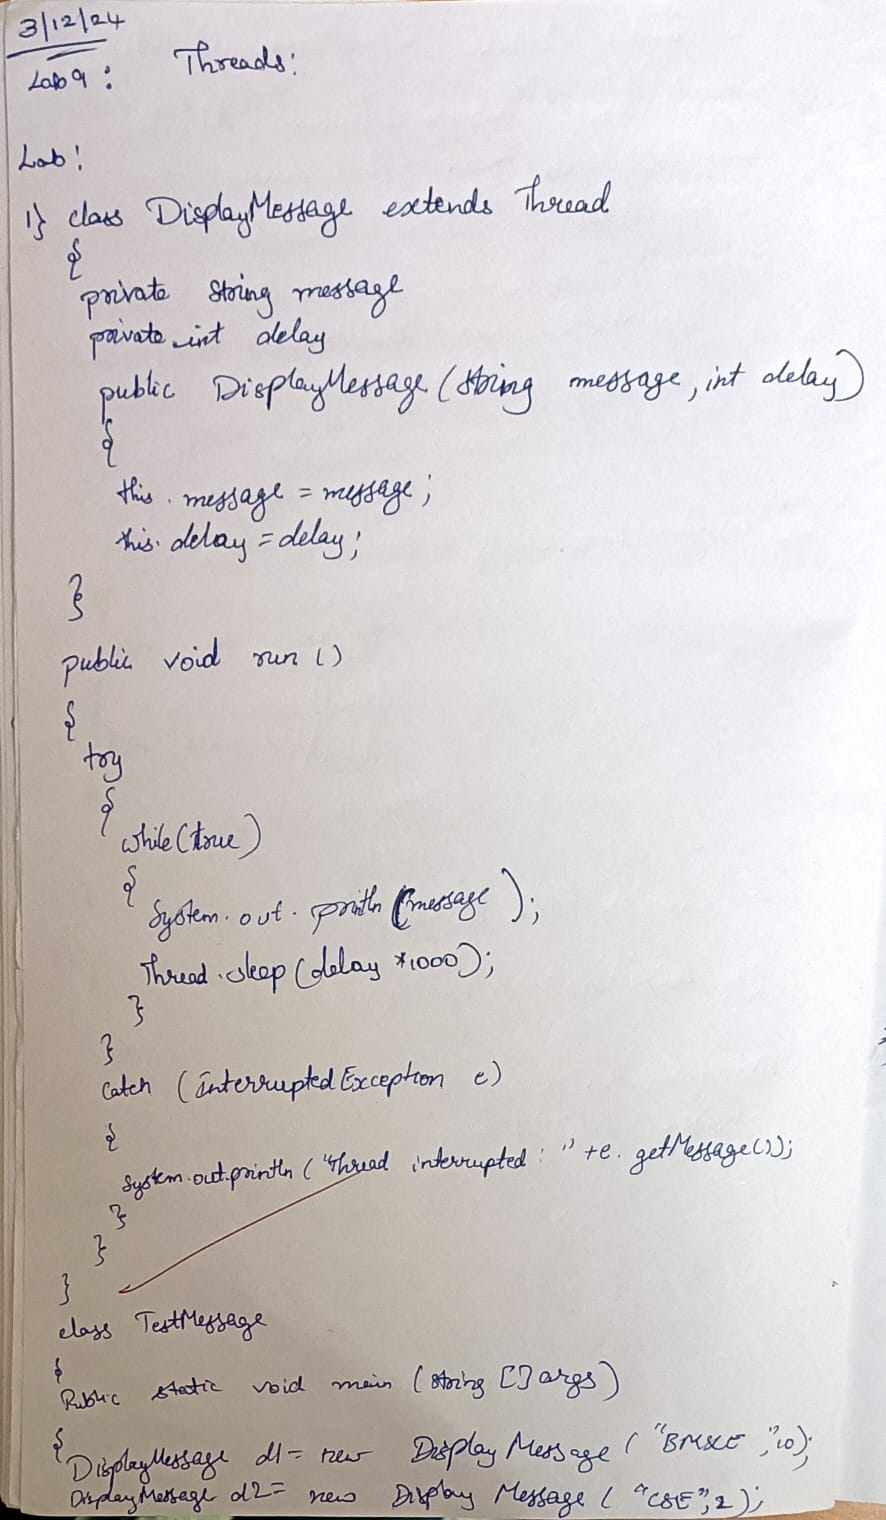 3/12/24
Lab 9 : Threads:
Lab!
1} class DisplayMessage extends Thread
{
private String message
private int delay
public DisplayMessage (String message, int delay)
{
this. message = message;
this. delay = delay;
}
public void run ()
{
try
{
while (true)
{
System. out. println (message );
Thread. sleep (delay *1000);
}
}
catch (InterruptedException e)
{
System.out.println ("Thread interrupted : " +e. getMessage());
}
}
}
class TestMessage
{
Public static void main (String [] args)
{
DisplayMessage d1 = new Display Message ( "BMSCE ",10);
DisplayMessage d2 = new Display Message ( "CSE", 2);